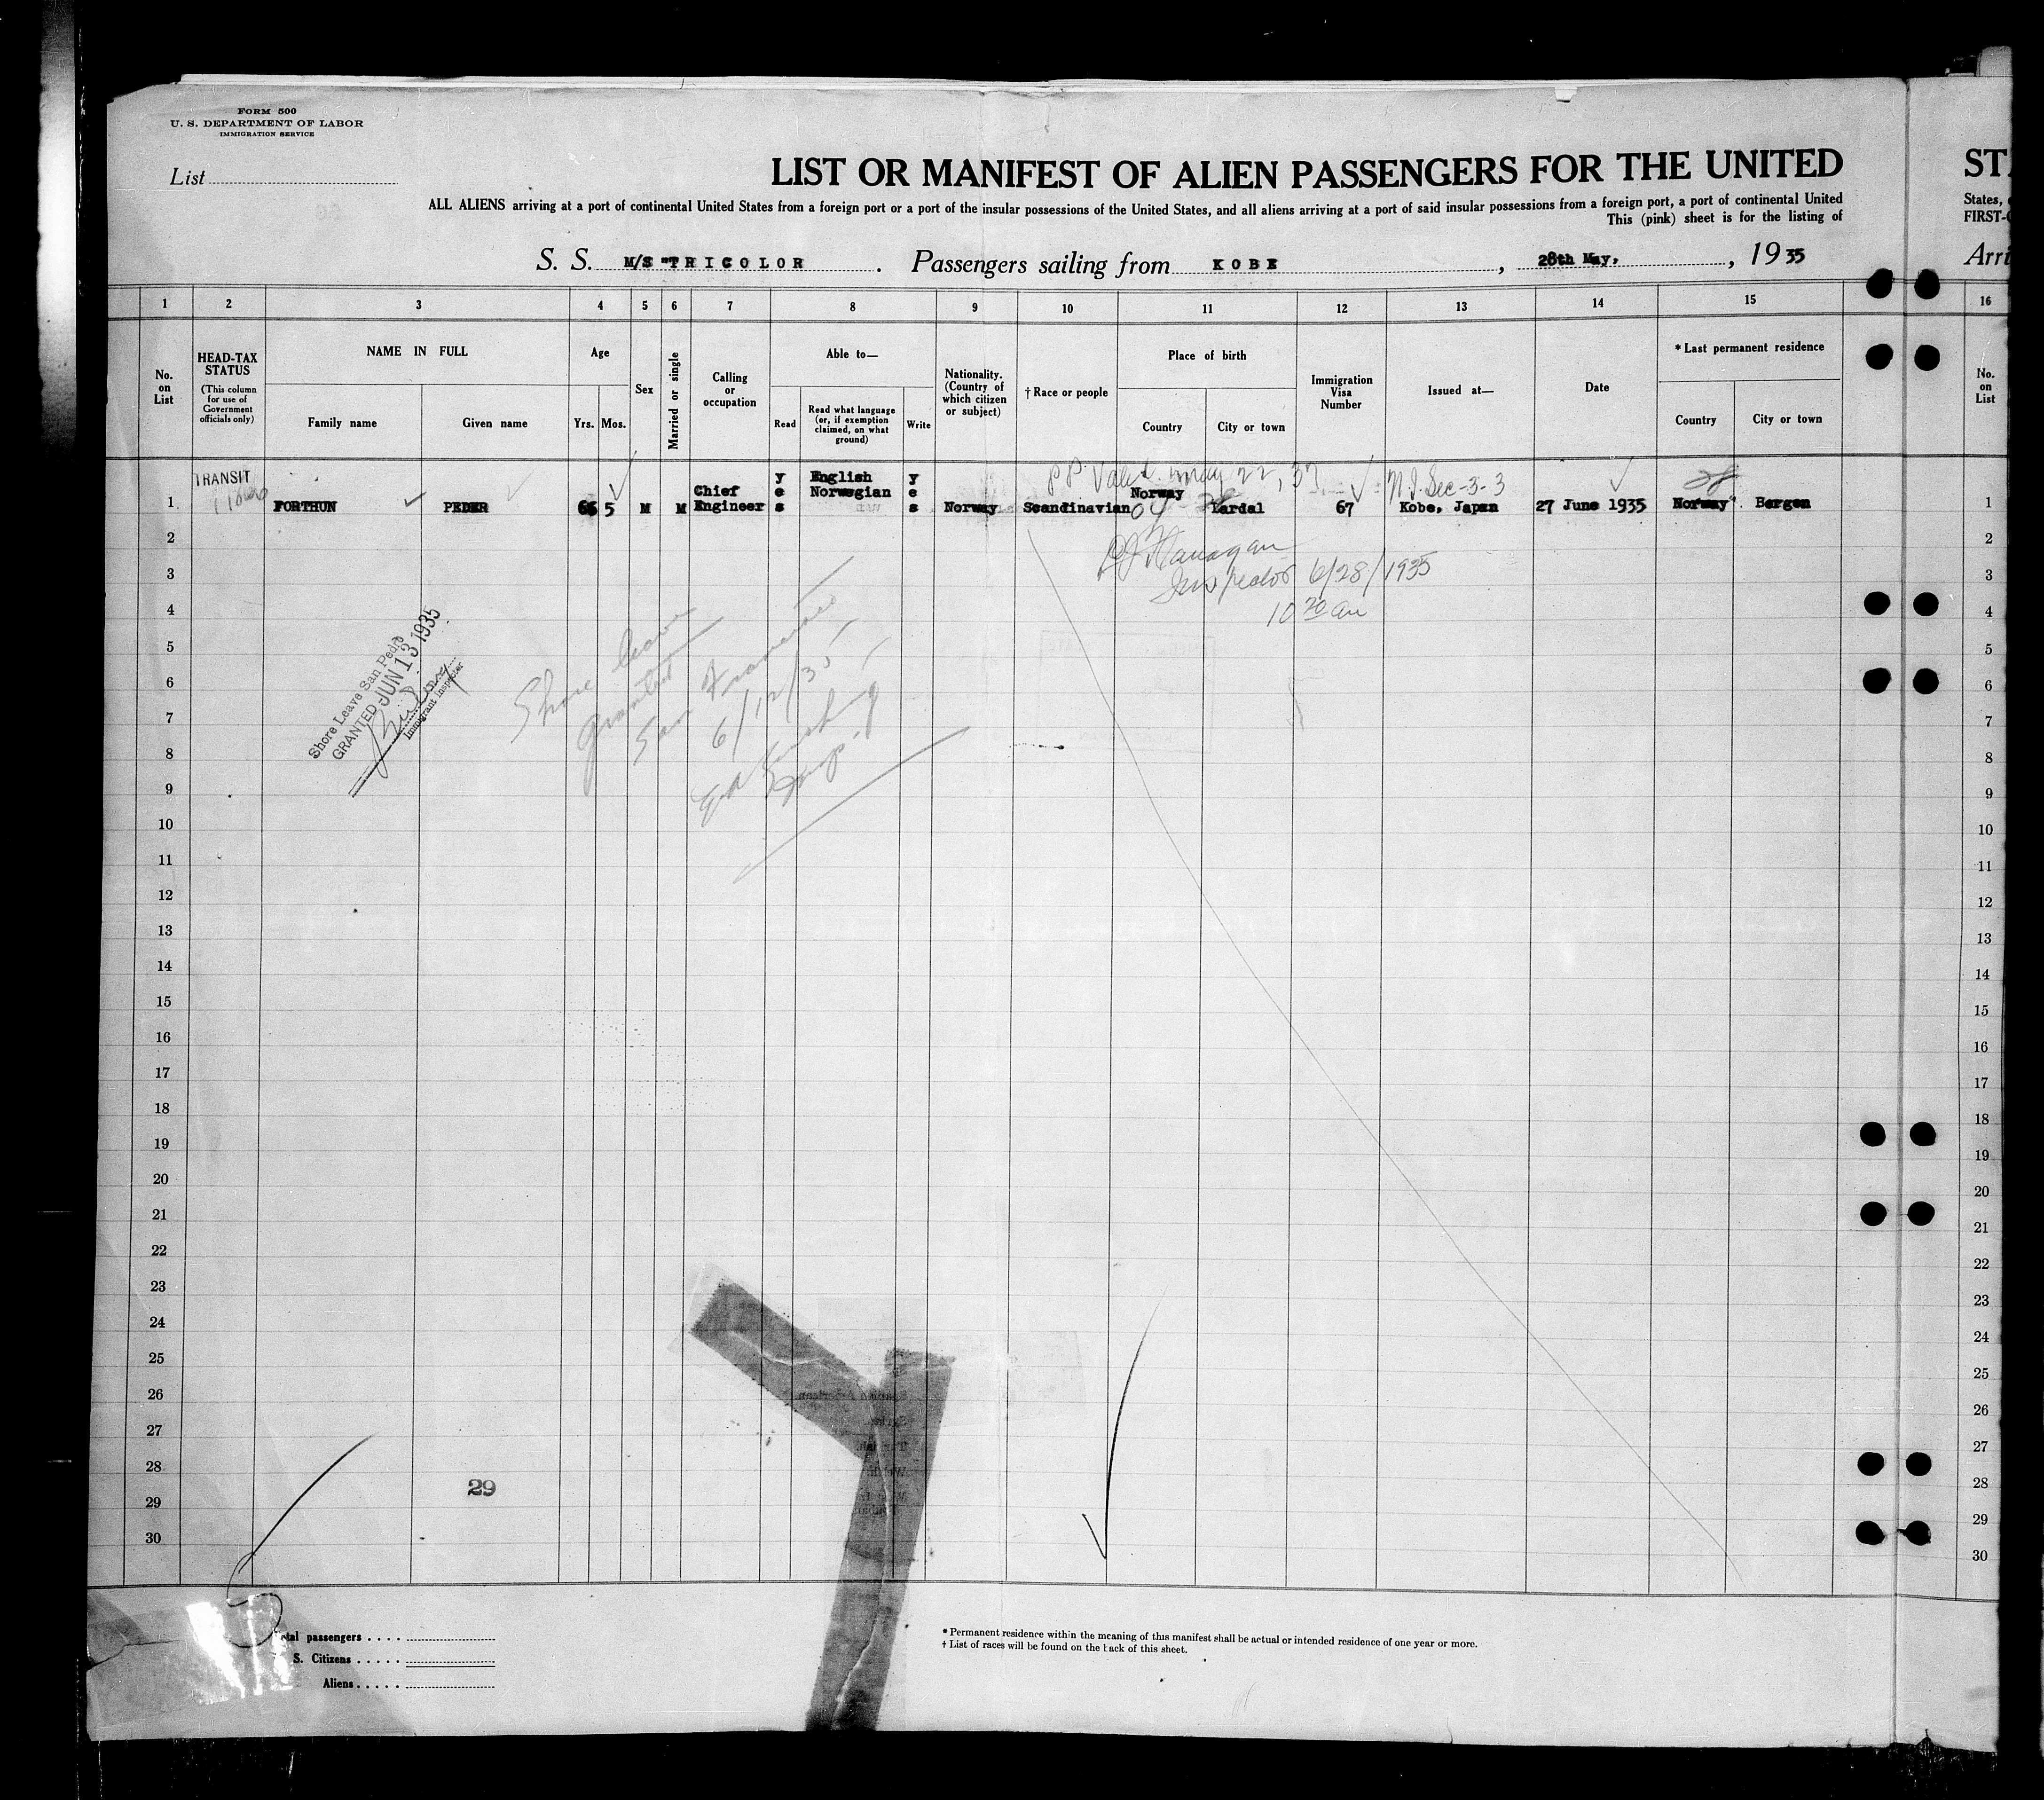 FORM 500
U. S. DEPARTMENT OF LABOR
IMMIGRATION SERVICE
List
LIST OR MANIFEST OF ALIEN PASSENGERS FOR THE UNITED
ALL ALIENS arriving at a port of continental United States from a foreign port or a port of the insular possessions of the United States, and all aliens arriving at a port of said insular possessions from a foreign port, a port of continental United
This (pink) sheet is for the listing of
States,
FIRST-
S. S. M/S "TRICOLOR . Passengers sailing from KOBE , 28th May, , 1935
Arri
1 2 3 4 5 6 7 8 9 10 11 12 13 14 15 16
No. on List
HEAD-TAX STATUS
(This column for use of Government officials only)
NAME IN FULL
Family name
Given name
Age
Yrs.
Mos.
Sex
Married or single
Calling or occupation
Able to—
Read
Read what language (or, if exemption claimed, on what ground)
Write
Nationality. (Country of which citizen or subject)
† Race or people
Place of birth
Country
City or town
Immigration Visa Number
Issued at—
Date
* Last permanent residence
Country
City or town
No. on List
P.P. Valid May 22, 37
N.I. Sec-3-3
TRANSIT
1 FORTHUN PEDER 5 M M Chief Engineer yes English Norwegian yes Norway Scandinavian Norway Lardal 67 Kobe, Japan 27 June 1935 Norway Bergen 1
2
3
4
5
6
7
8
9
10
11
12
13
14
15
16
17
18
19
20
21
22
23
24
25
26
27
28
29
30
Flanagan
Inspector 6/28/1935
10 20 am
Shore Leave San Pedro
GRANTED JUN 13 1935
Immigrant Inspector
Shore leave
granted
San Francisco
6/12/35
Insp.
29
2
3
4
5
6
7
8
9
10
11
12
13
14
15
16
17
18
19
20
21
22
23
24
25
26
27
28
29
30
tal passengers
S. Citizens
Aliens
* Permanent residence within the meaning of this manifest shall be actual or intended residence of one year or more.
† List of races will be found on the back of this sheet.